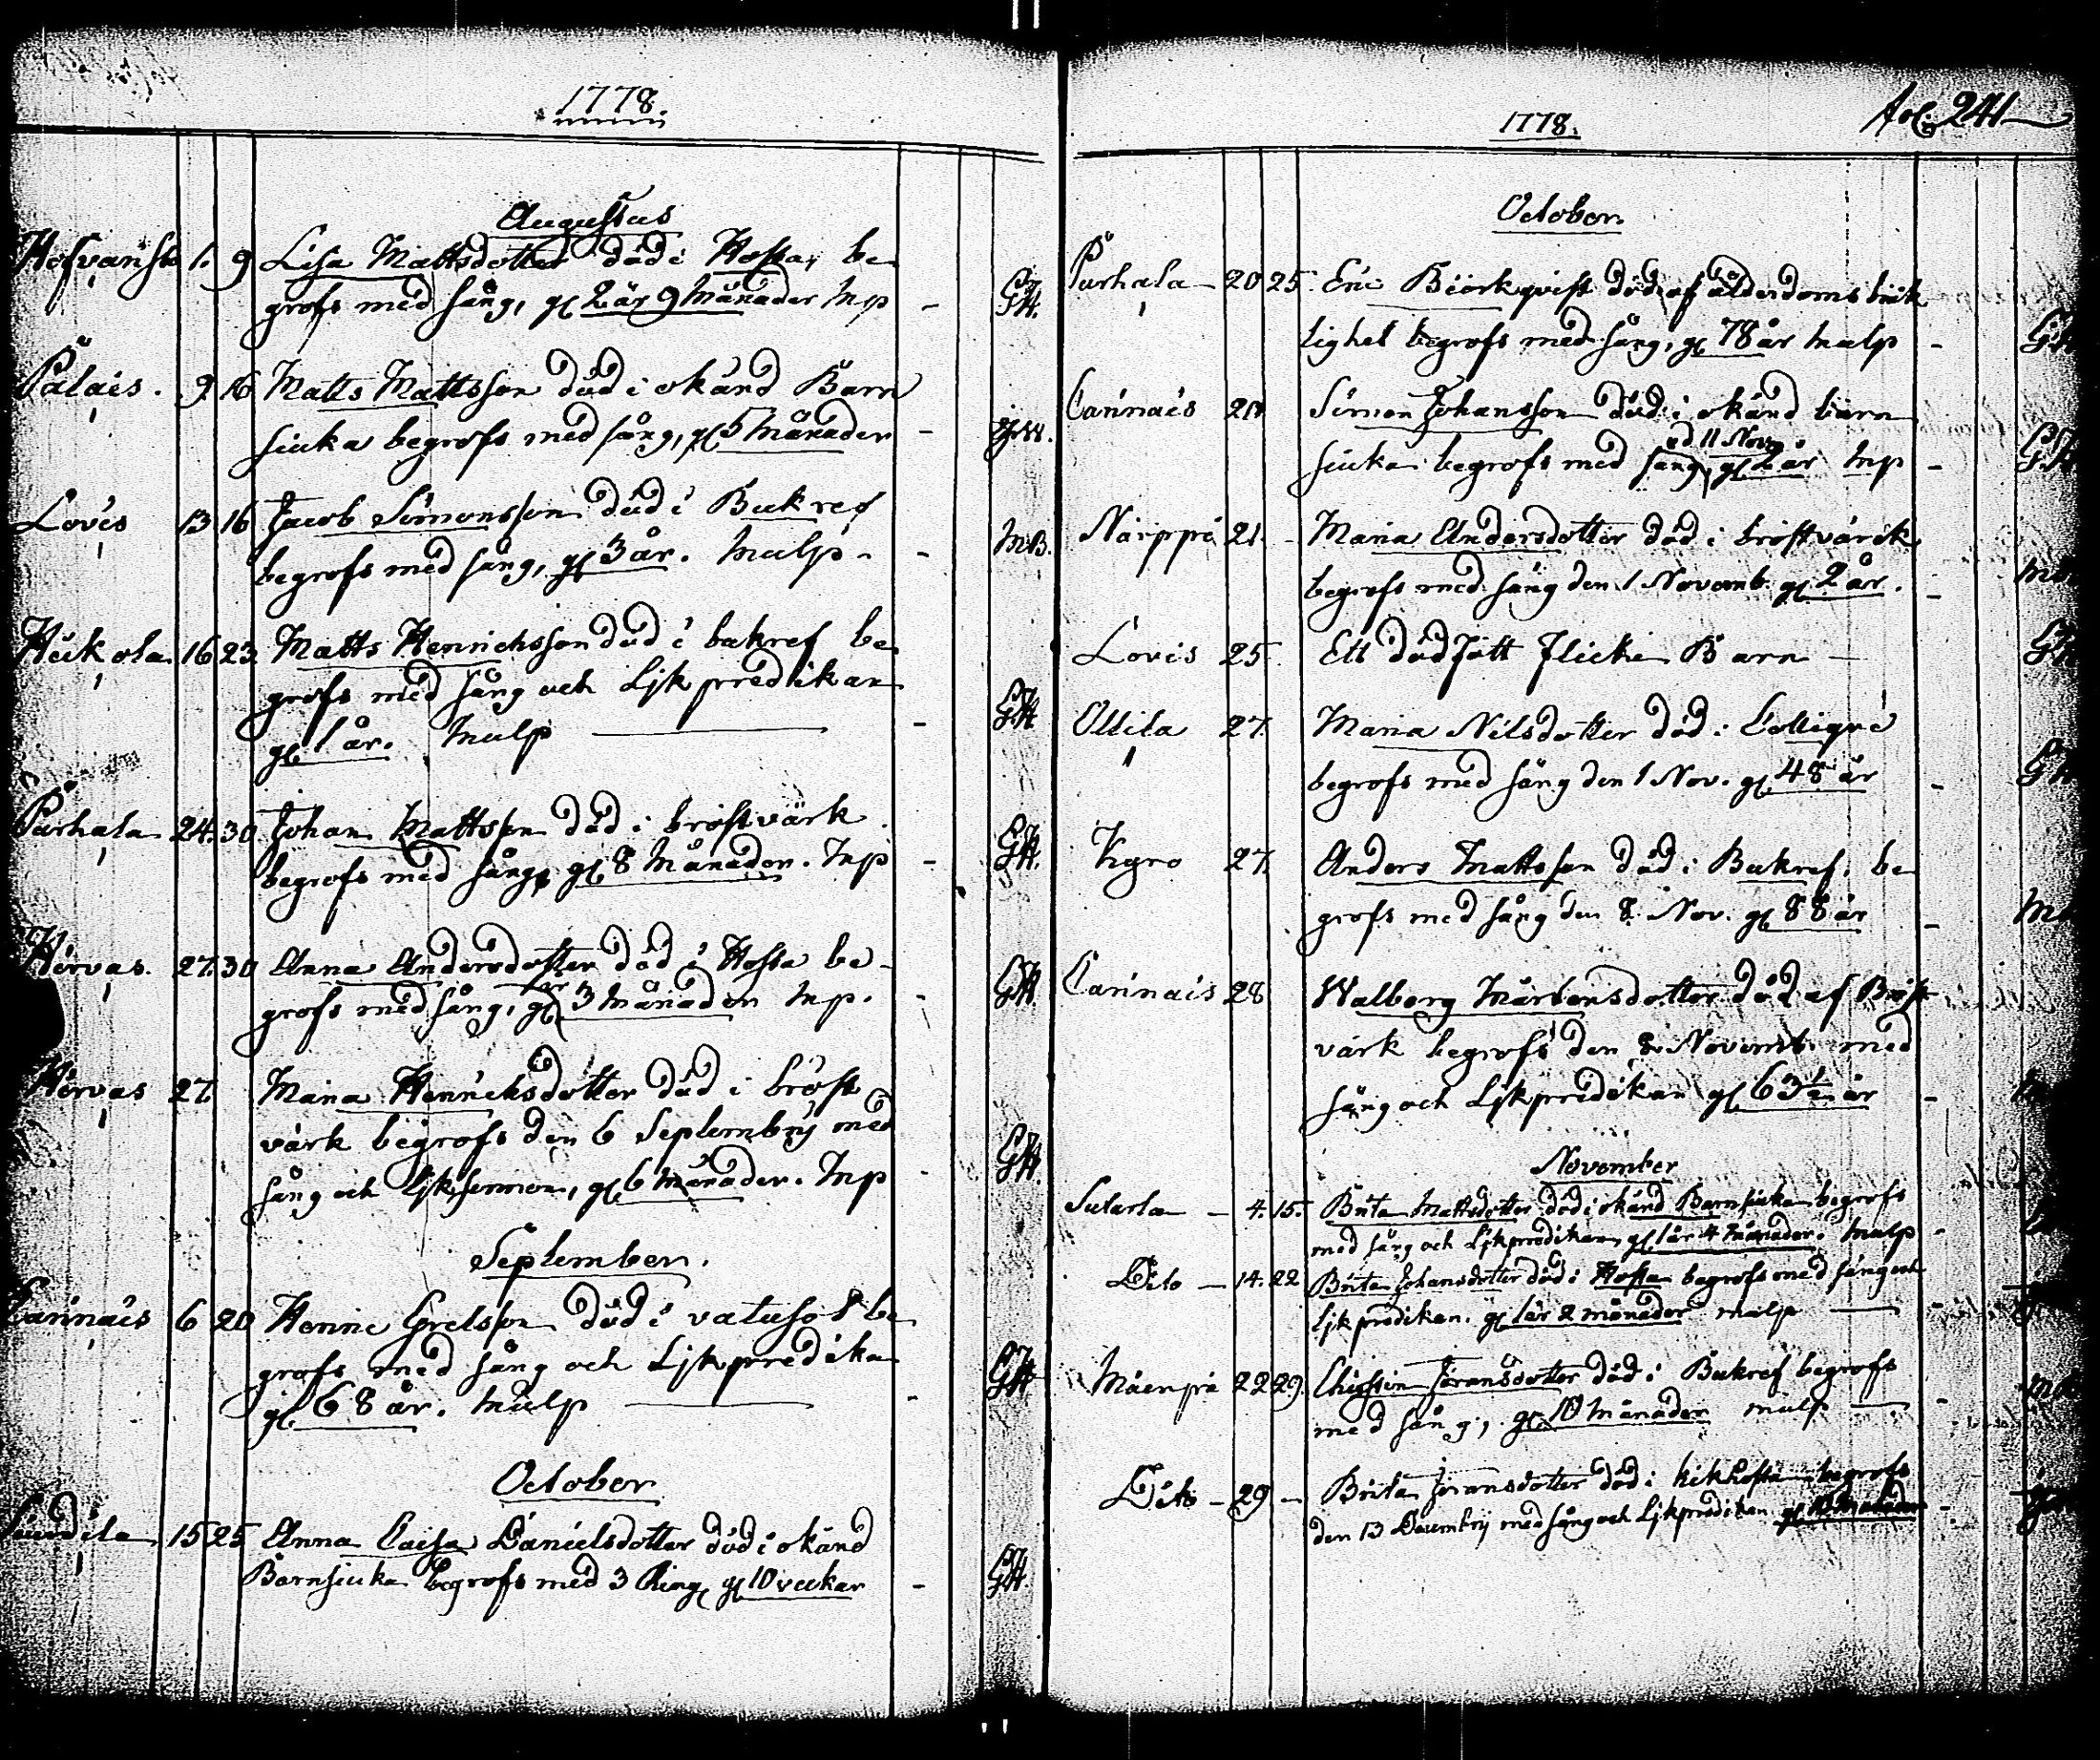 1778.
Augustus
1. 9 Lisa Mattsdotter död i Hosta, be
grofs med sång, gl 2 år 9 månader Inp - GH.
Pálais. 9 16 Matts Mattsson död i okänd Barn
siuka begrofs med sång, gl 5 månader -
Lovis 13 16 Jacob Simonsson död i Bukref
begrofs med sång, gl 3 år. Malp - - MB.
Huikola 16 23 Matts Henrichsson död i bukref be
grofs med sång och Ljkpredikan
gl 1 år. Malp - GH
Purhala 24. 30 Johan Mattsson död i bröstvärk
begrofs med sång, gl 8 månader. Inp - GH.
Hervas. 27. 30 Anna Andersdotter död i Hosta be-
grofs med sång, gl 3 månader Inp. - GH.
Hervas 27. Maria Henrichsdotter död i bröst
värk begrofs den 6 Septembrij med
sång och Ljksermon, gl 6 månader. Inp - GH.
September.
Cannais 6 20 Henric Grelsson död i vatusot be
grofs med sång och Ljkpredika
gl 68 år. Malp - GH
October
15 25 Anna Caisa Danielsdotter död i okänd
Barnsiuka begrofs med 3 Ring gl 10 veckar - GH.
1778.
Fol. 241
October.
Purhala - 20 25. Eric Biörkqvist död af ålderdoms bräk
lighet begrofs med sång, gl 78 år Malp -
Cannais 20 Simon Johansson död i okänd barn
siuka begrofs med sång, d 11 Nov. gl 2 år Inp -
Närppi 21. - Maria Andersdotter död i bröstvärck
begrofs med sång den 1 Novemb. gl 2 år. -
Lovis 25. Ett dödfött flicke Barn -
Ollila 27. Maria Nilsdotter död i Colliqve
begrofs med sång den 1 Nov. gl 48 år -
Kyro 27. Anders Mattsson död i Bukref. be
grofs med sång den 8 Nov. gl 88 år -
Cannais 28 Walborg Mårtensdotter död af Bröst
värk begrofs den 8 Novemb. med
sång och Ljkpredikan gl 63 1/2 år -
November
Sutarla - 4. 15. Brita Mattsdotter död i okänd Barnsiuka begrofs
med sång och Ljkpredikan, gl 1 år 4 månader. Malp -
Dito - 14. 22 Brita Johansdotter död i Hosta begrofs med sång och
Ljkpredikan. gl 1 år 2 månader malp -
Mäenpä 22 29. Christin Jöransdotter död i Bukref begrofs
med sång, gl 10 månader malp -
Dito - 29 - Brita Jöransdotter död i kikhosta begrofs
den 13 Decembrij med sång och Ljkpredikan gl